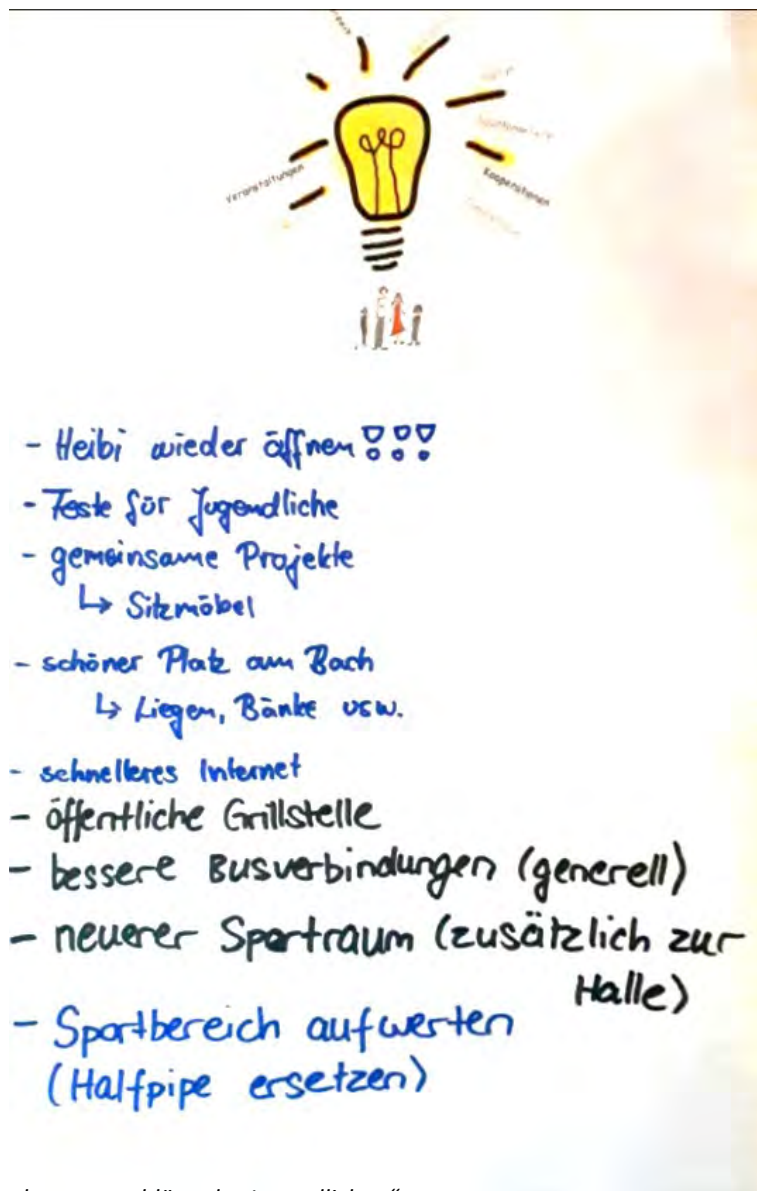 Veranstaltungen
Kooperationen
- Heibi wieder öffnen !!!
- Feste für Jugendliche
- gemeinsame Projekte
↳ Sitzmöbel
- schöner Platz am Bach
↳ Liegen, Bänke usw.
- schnelleres Internet
- öffentliche Grillstelle
- bessere Busverbindungen (generell)
- neuerer Sportraum (zusätzlich zur
Halle)
- Sportbereich aufwerten
(Halfpipe ersetzen)